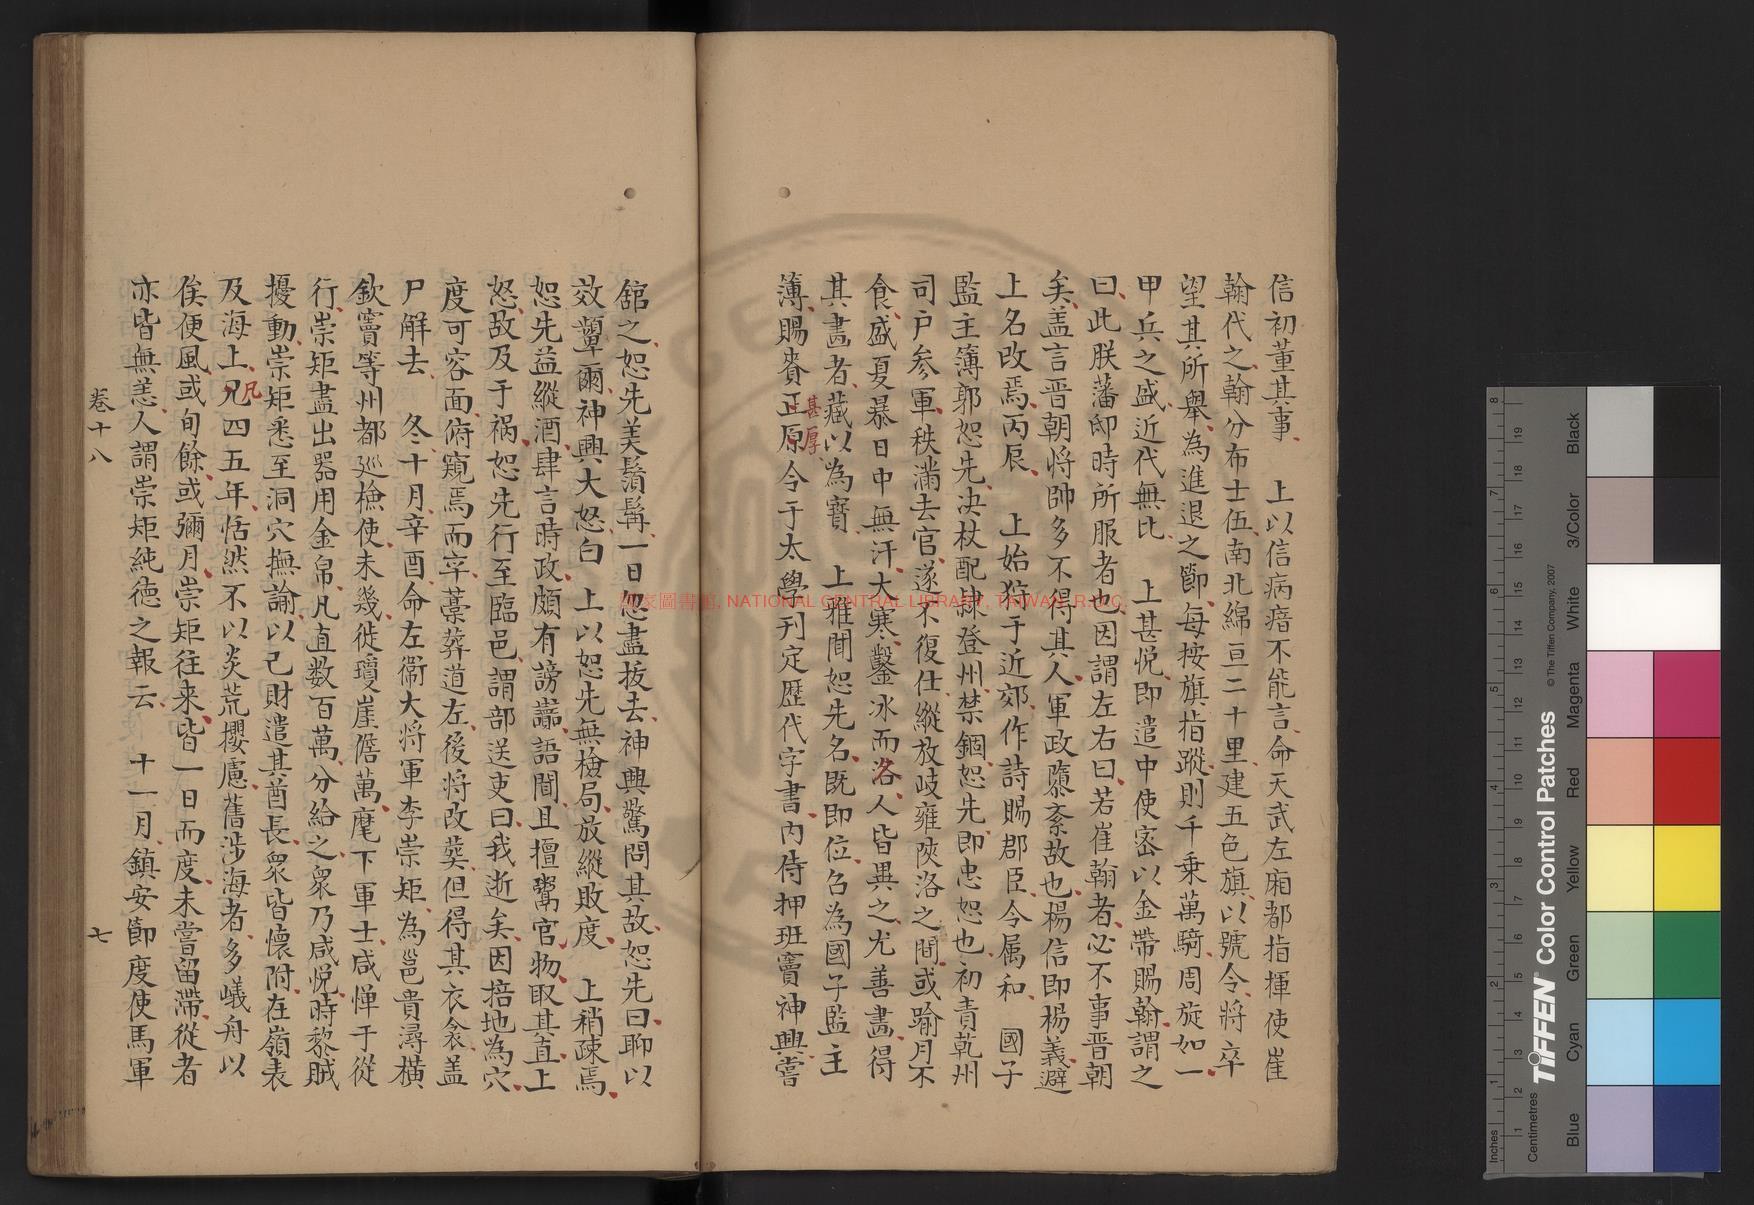 信初董其事　上以信病瘖不能言命天武左廂都指揮使崔
翰代之翰分布士伍南北綿亘二十里建五色旗以號令將卒
望其所舉為進退之節每按旗指蹤則千乘萬騎周旋如一
甲兵之盛近代無比　上甚悦即遣中使密以金帶賜翰謂之
曰此朕藩邸時所服者也因謂左右曰若崔翰者必不事晋朝
矣盖言晋朝將帥多不得其人軍政隳紊故也楊信即楊義避
上名改焉丙辰　上始狩于近郊作詩賜郡臣令属和　國子
監主簿郭恕先決杖配隸登州禁錮恕先即忠恕也初責乾州
司户参軍秩滿去官遂不復仕縱放岐雍陝洛之間或踰月不
食盛夏暴日中無汗大寒鑿冰而洛人皆異之尤善畵得
其畵者藏以為寶　上雅聞恕先名既即位召為國子監主
簿賜賚正原令于太學刊定歷代字書内侍押班竇神興嘗
甚厚
舘之恕先美鬚髯一日忽盡拔去神興驚問其故恕先曰聊以
效顰爾神興大怒白　上以恕先無檢局放縱敗度　上稍疎焉
恕先益縱酒肆言時政頗有謗讟語聞且擅鬻官物取其直上
怒故及于禍恕先行至臨邑謂部送吏曰我逝矣因掊地為穴
度可容面俯窺焉而卒藁葬道左後將改葬但得其衣衾盖
尸解去　冬十月辛酉命左衞大將軍李崇矩為邕貴潯橫
欽竇等州都廵檢使未幾徙瓊崖儋萬麾下軍士咸憚于從
行崇矩盡出器用金帛凡直数百萬分給之衆乃咸悦時黎賊
擾動崇矩悉至洞穴撫諭以己財遣其酋長衆皆懷附在嶺表
及海上兄四五年恬然不以炎荒攖慮舊涉海者多艤舟以
凡
俟便風或旬餘或彌月崇矩往来皆一日而度未嘗留滯從者
亦皆無恙人謂崇矩純德之報云　十一月鎮安節度使馬軍
卷十八　七
國家圖書館, NATIONAL CENTRAL LIBRARY, TAIWAN, R.O.C.
TIFFEN® Color Control Patches
© The Tiffen Company, 2007
Inches
Centimetres
Blue
Cyan
Green
Yellow
Red
Magenta
White
3/Color
Black